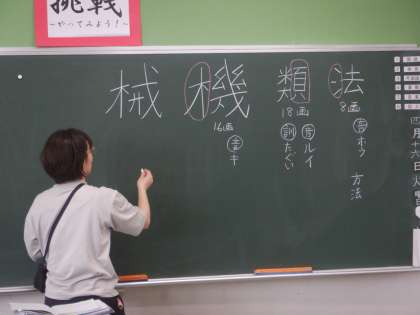 挑戦
～やってみよう！～
法
8画
音ホウ 方法
類
18画
音ルイ
訓たぐい
機
16画
音キ
械
四月十六日火曜日